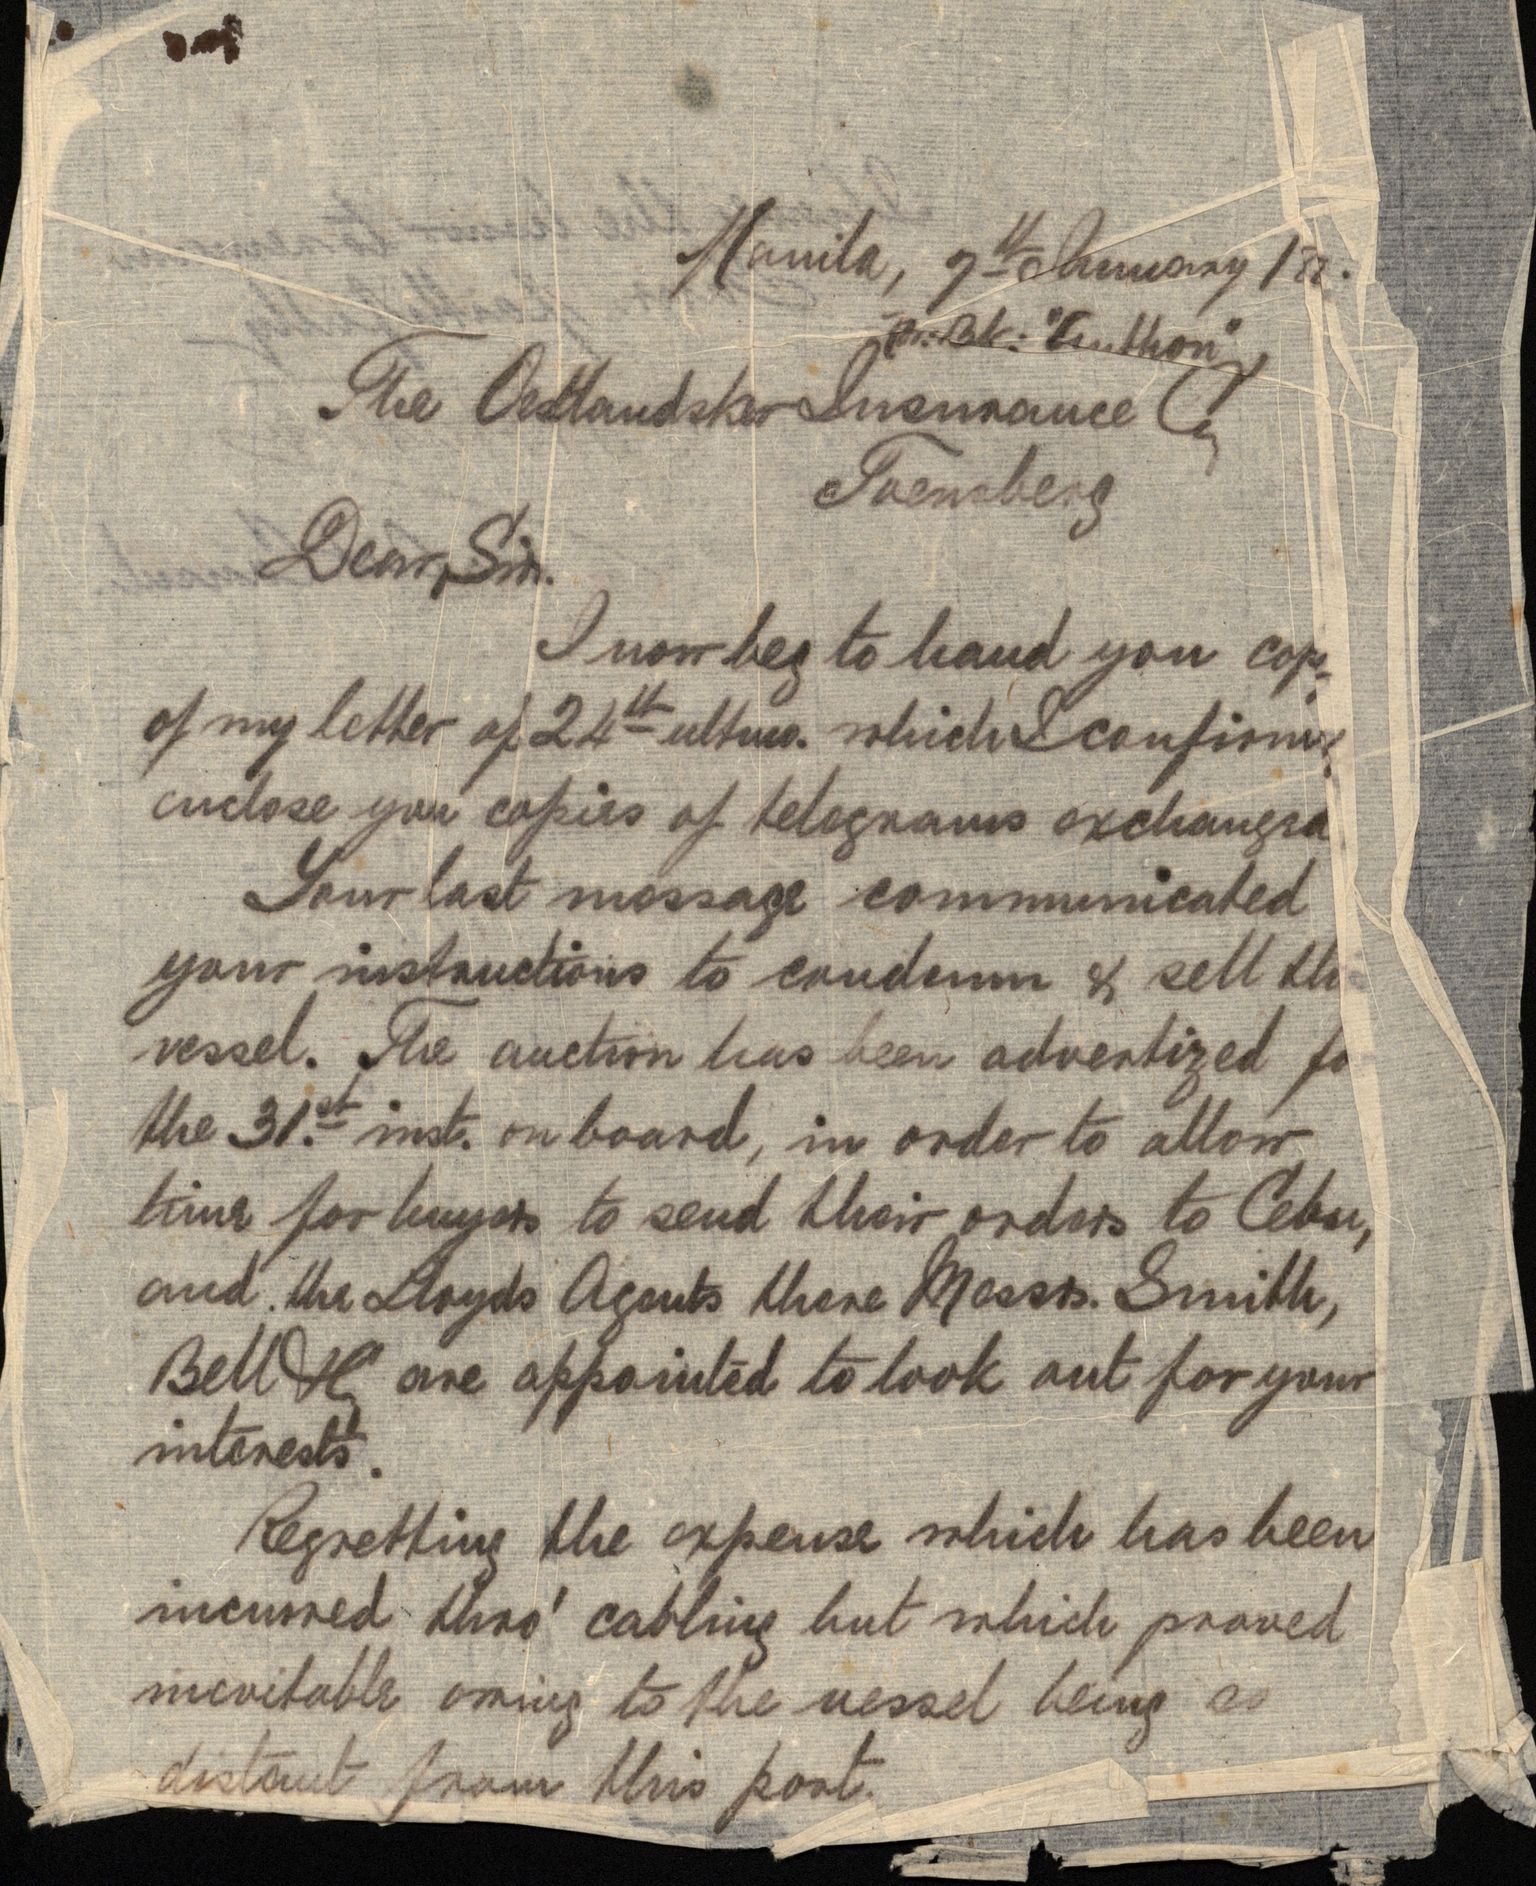 Manila, 9th January 18
Nor. Bk: "Euthon"
The Oestlandske Insurance Cy
Toensberg
Dear Sir.
I now beg to hand you cop
of my letter of 24th ultmo. which I confirm &
enclose you copies of telegrams exchanged
Your last message communicated
your instructions to condemn & sell the
vessel. The auction has been advertized fo
the 31.st inst. on board, in order to allow
time for buyers to send their orders to Cebu,
and the Lloyds Agents there Messrs. Smith,
Bell & Cy are appointed to look out for your
interests.
Regretting the expense which has been
incurred thro' cabling but which proved
inevitable owing to the vessel being so
distant from this port.